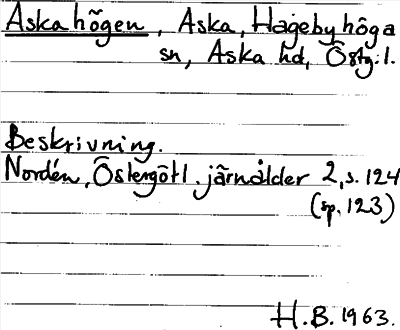 Aska högen, Aska, Hagebyhöga
sn, Aska hd, Östg:l.
Beskrivning.
Nordén, Östergötl. järnålder 2, s. 124
(sp. 123)
H.B. 1963.